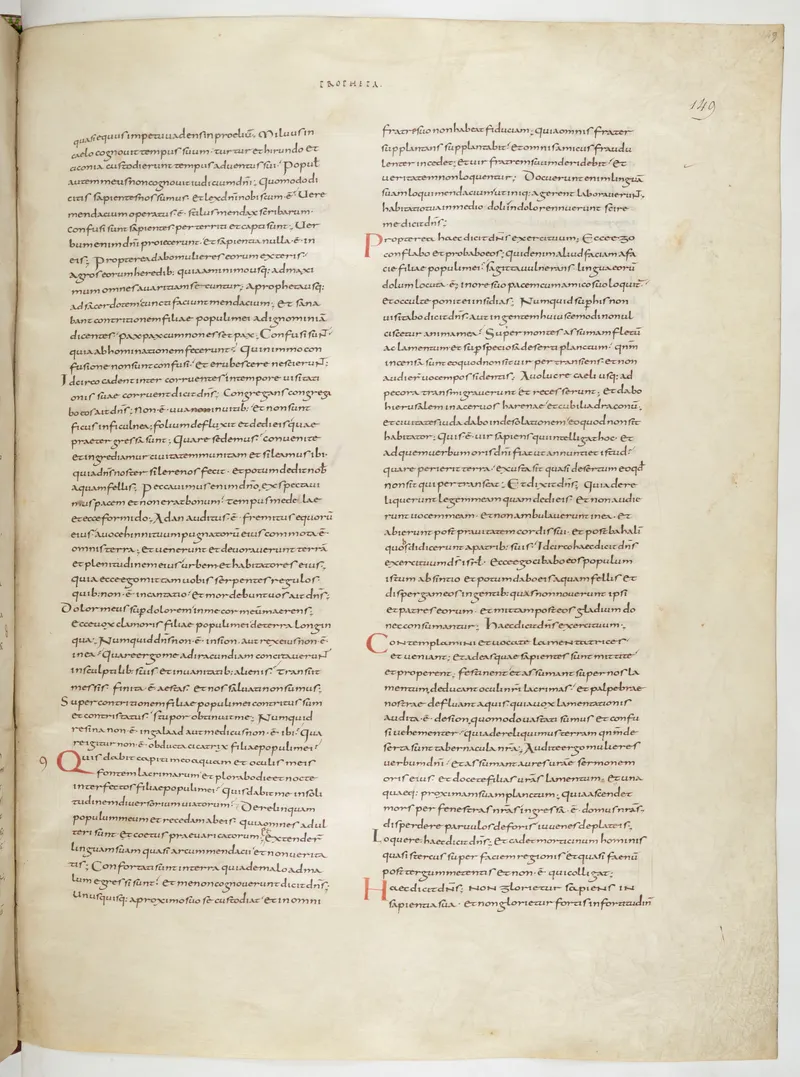 PROPHETA.
149
quasi equus impetu uadens in proeliū. Miluus in
caelo cognouit tempus suum. turtur et hirundo et
ciconia custodierunt tempus aduentus sui. Popul
autem meus non cognouit iudicium dn̄i; Quomodo di
citis sapientes nos sumus. et lex dn̄i nobiscum .ē. Uere
mendacium operatus .ē. stilus mendax scribarum.
confusi sunt sapientes perterriti et capti sunt; Uer
bum enim dn̄i proiecerunt. et sapientia nulla .ē. in
eis; Propterea dabo mulieres eorum exteris.
agros eorum heredib; quia a minimo usq; ad maxi
mum omnes auaritiam sectuntur; a propheta usq;
ad sacerdotem cuncti faciunt mendacium; et sana
bant contritionem filiae populi mei ad ignominiā
dicentes. pax pax cum non esset pax; Confusi sunt
quia abhominationem fecerunt; Quin immo con
fusione non sunt confusi. et erubescere nescierunt;
Idcirco cadent inter corruentes in tempore uisitati
onis suae corruent dicit dn̄s; Congregans congrega
bo eos ait dn̄s; non .ē. uua in uitib; et non sunt
ficus in ficulnea; folium defluxit et dedi eis quae
praetergressa sunt; Quare sedemus. conuenite
et ingrediamur ciuitatem munitam et sileamus ibi.
quia dn̄s noster silere nos fecit. et potum dedit nob
aquam fellis; Peccauimus enim dn̄o, exspectaui
mus pacem et non erat bonum. tempus medelae
et ecce formido; A dan auditus .ē. fremitus equorū
eius a uoce hinnituum pugnatorū eius commota .ē.
omnis terra; et uenerunt et deuorauerunt terrā
et plenitudinem eius urbem et habitatores eius,
quia ecce ego mittam uobis serpentes regulos
quib; non .ē. incantatio. et mordebunt uos ait dn̄s;
Dolor meus sup dolorem in me cor meūm maerens;
Ecce uox clamoris filiae populi mei de terra longin
qua; Numquid dn̄s non .ē. in sion. aut rex eius non .ē.
in ea. Quare ergo me ad iracundiam concitauerunt
in sculptilib; suis et in uanitatib; alienis. Transiit
messis. finita .ē. aestas. et nos saluati non sumus;
Super contritionem filiae populi mei contritus sum
et contristatus. stupor obtinuit me; Numquid
resina non .ē. in galaad aut medicus non .ē. ibi. Qua
re igitur non .ē. obducta cicatrix filiae populi mei.
9 Quis dabit capiti meo aquam et oculis meis
fontem lacrimarum. et plorabo die et nocte
interfectos filiae populi mei. Quis dabit me in soli
tudinem diuersorium uiatorum. Derelinquam
populum meum et recedam ab eis. quia omnes adul
teri sunt et coetus praeuaricatorum; et extender
linguam suam quasi arcum mendacii et non uerita
tis; Confortati sunt in terra quia de malo ad ma
lum egressi sunt. et me non cognouerunt dicit dn̄s;
Unusquisq; a proximo suo se custodiat. et in omni
fratre suo non habeat fiduciam; quia omnis frater
supplantans supplantabit. et omnis amicus fraudu
lenter incedet; et uir fratrem suum deridebit. et
ueritatem non loquentur; Docuerunt enim linguā
suam loqui mendacium. ut iniq; agerent laborauerunt;
habitatio tua in medio doli in dolo rennuerunt scire
me dicit dn̄s;
Propterea haec dicit dn̄s exercituum; Ecce ego
conflabo et probabo eos; quid enim aliud faciam a fa
cie filiae populi mei. sagitta uulnerans lingua eorū
dolum locuta .ē; in ore suo pacem cum amico suo loquit.
et occulte ponit ei insidias. Numquid sup his non
uisitabo dicit dn̄s. aut in gentem huiuscemodi non ul
ciscetur anima mea. Super montes assumam fletū
ac lamentum et sup speciosa deserti planctum. qn̄m
incensa sunt eo quod non sit uir pertransiens. et non
audier uocem possidentis; A uolucre caeli usq; ad
pecora transmigrauerunt et recesserunt; Et dabo
hierusalem in aceruos harenae et cubilia draconū,
et ciuitates iuda dabo in desolationem eo quod non sit
habitator; Quis .ē. uir sapiens qui intellegat hoc. et
ad quem uerbum oris dn̄i fiat ut annuntiet istud.
quare perierit terra. exusta sit quasi desertum eo qd
non sit qui pertranseat; Et dixit dn̄s; Quia dere
liquerunt legem meam quam dedi eis. et non audie
runt uocem meam. et non ambulauerunt in ea. et
abierunt post prauitatem cordis sui. et post bahali
quos didicerunt a patrib; suis. Idcirco haec dicit dn̄s
exercituum ds̄ isrl. Ecce ego cibabo eos populum
istum absintio et potum dabo eis aquam fellis et
dispergam eos in gentib; quas non nouerunt ipsi
et patres eorum. et mittam post eos gladium do
nec consumantur; Haec dicit dn̄s exercituum.
Contemplamini et uocate lamentatrices
et ueniant; et ad eas quae sapientes sunt mittite.
et properent, festinent et assumant super nos la
mentum, deducant oculi nr̄i lacrimas. et palpebrae
nostrae defluant aquis. quia uox lamentationis
audita .ē. de sion, quomodo uastati sumus et confu
si uehementer. quia dereliquimus terram qn̄m de
serta sunt tabernacula nr̄a; Audite ergo mulieres
uerbum dn̄i. et assumant aures urae sermonem
oris eius. et docete filias urās lamentum, et una
quaeq; proximam suam planctum, quia ascendet
mors per fenestras nr̄as ingressa .ē. domus nr̄as.
disperdere paruulos deforis iuuenes de plateis,
Loquere haec dicit dn̄s; et cadet morticinum hominis
quasi stercus super faciem regionis et quasi faenū
post tergum metentis et non .ē. qui colligat;
Haec dicit dn̄s; non glorietur sapiens in
sapientia sua. et non glorietur fortis in fortitudin